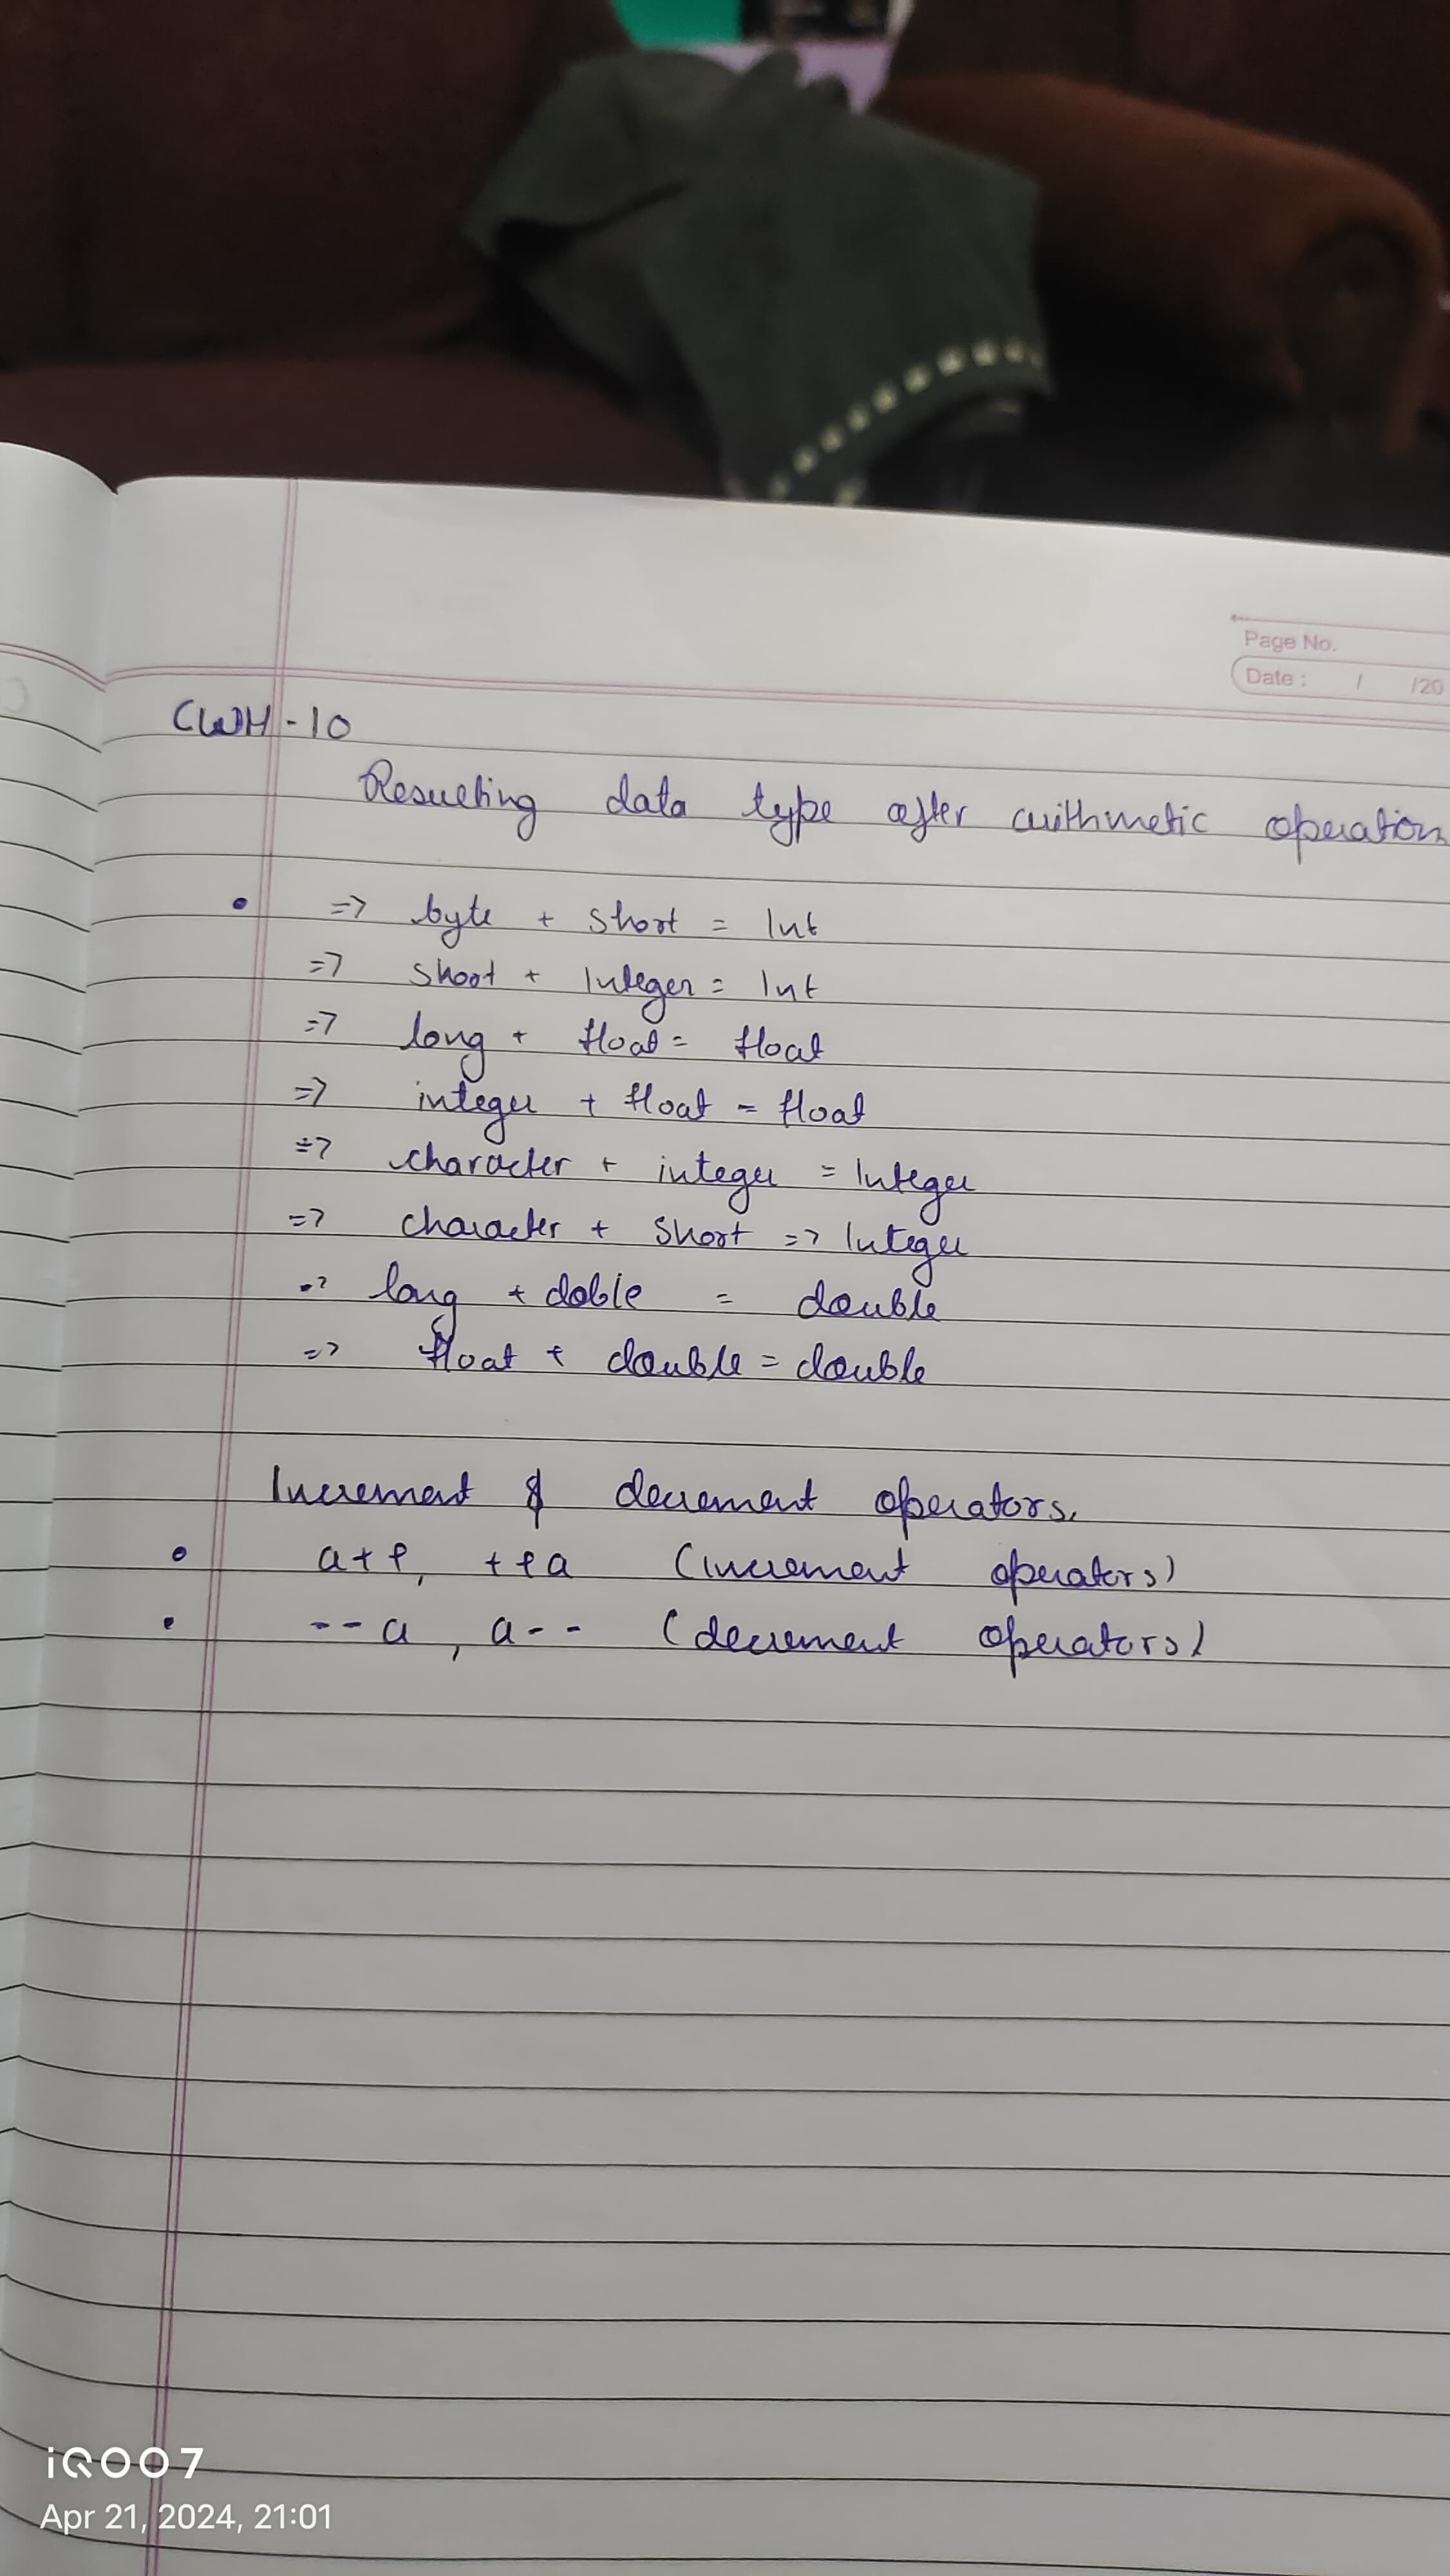 Page No.
Date : / /20
CWH - 10
Resulting data type after arithmetic operation
• => byte + short = Int
=> short + Integer = Int
=> long + float = float
=> integer + float = float
=> character + integer = Integer
=> character + short => Integer
=> long + doble = double
=> float + double = double
Increment & decrement operators.
• a++, ++a (increment operators)
• --a, a-- (decrement operators)
iQOO 7
Apr 21, 2024, 21:01